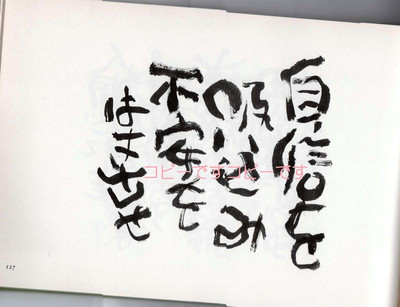 自信を
吸いこみ
不安を
はき出せ
コピーですコピーです
127